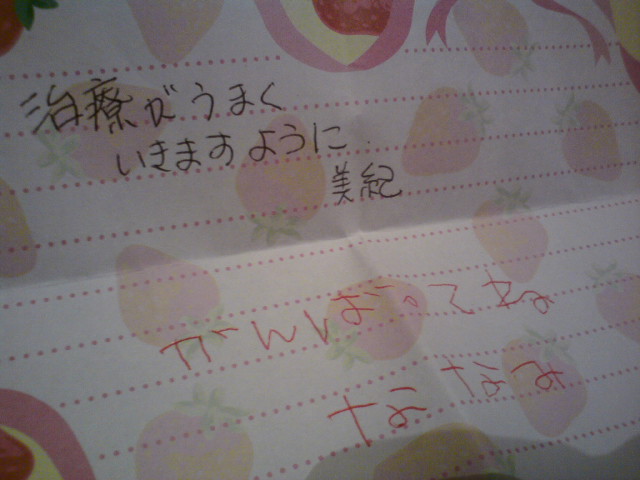 治療がうまく
いきますように
美紀
がんばってね